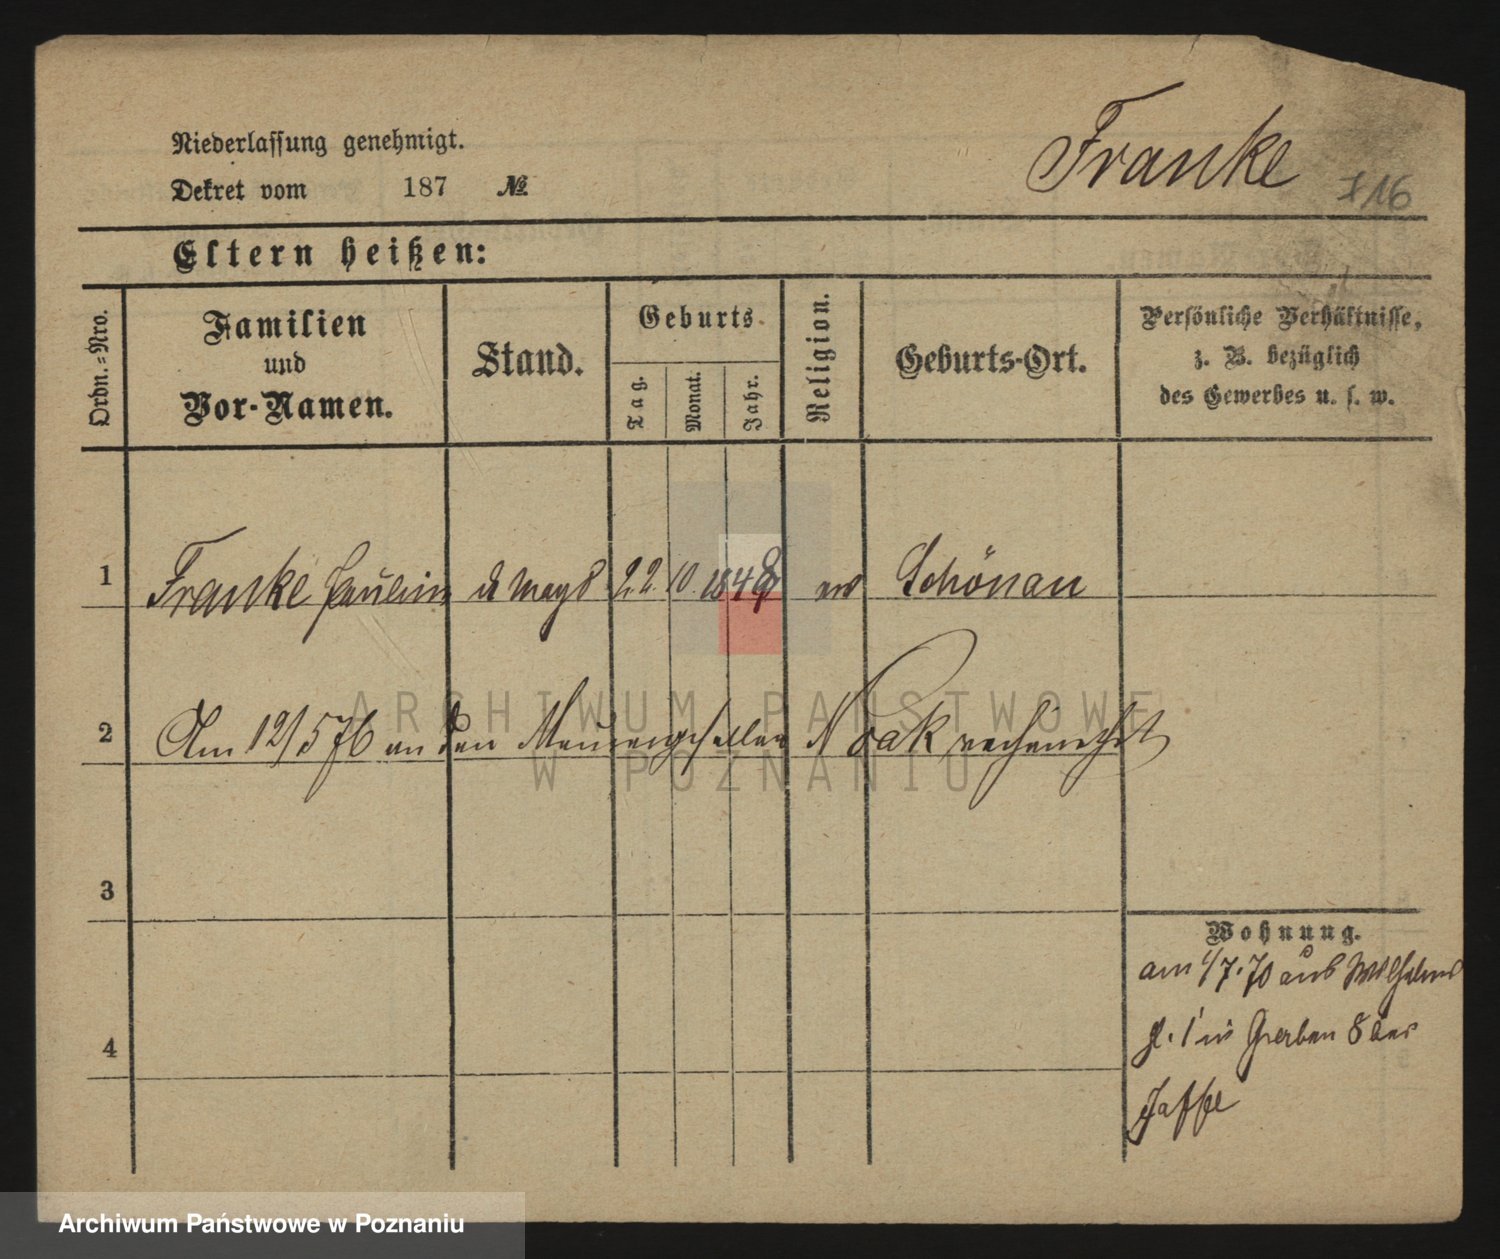 Franke
716
Niederlassung genehmigt.
Dekret vom 187 №
Eltern heißen:
Ordn.=Nro.
Familien
und
Vor-Namen.
Stand.
Geburts
Tag.
Monat.
Jahr.
Religion.
Geburts-Ort.
Persönliche Verhältnisse,
z. B. bezüglich
des Gewerbes u. s. w.
1 Franke Pauline d Magd 22 10 1848 ev Schönau
2 Am 12/5 76 an den Maurergesellen Noak verheirathet
3
Wohnung.
am 1/7.70 aus Wilhelms
pl. 1 in Graben 8 bei
Jaffe
4
ARCHIWUM PAŃSTWOWE
W POZNANIU
Archiwum Państwowe w Poznaniu